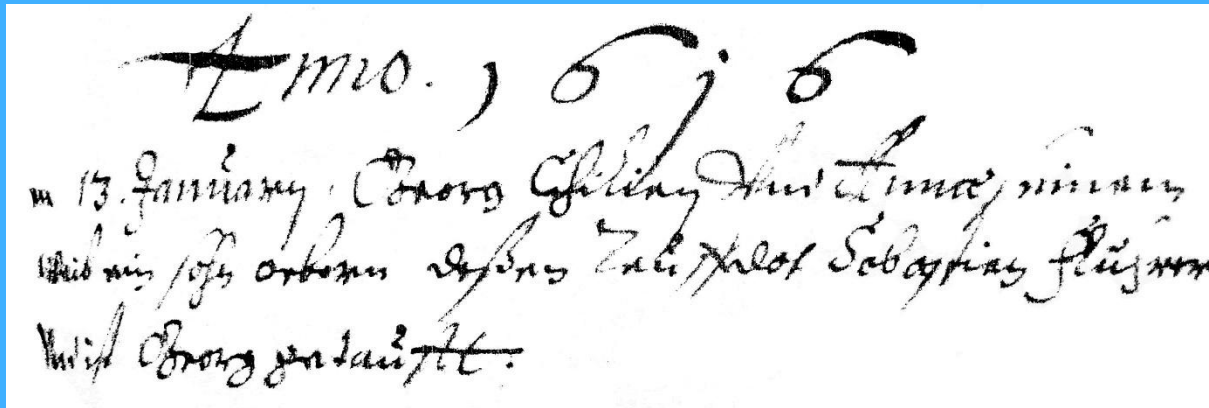 Anno. 1616
m 13. January. Georg Chilien Und Anna seinem
Weib ein sohn geborn deßen Tauffdot Sebastien
Und ist Georg getaufft.